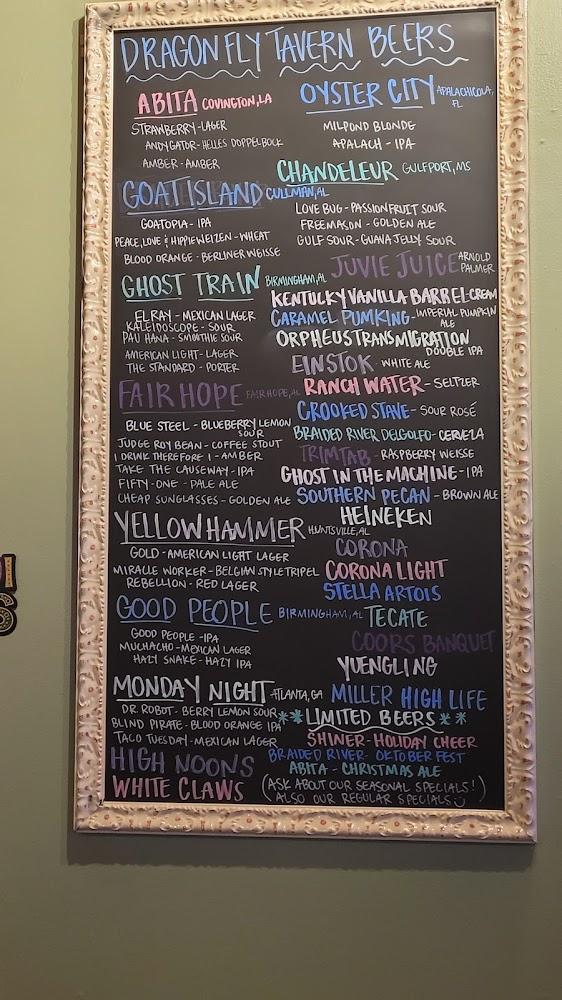 DRAGONFLY TAVERN BEERS
ABITA COVINGTON, LA
STRAWBERRY-LAGER
ANDYGATOR-HELLES DOPPELBOCK
AMBER-AMBER
GOAT ISLAND CULLMAN, AL
GOATOPIA - IPA
PEACE, LOVE & HIPPIEWEIZEN - WHEAT
BLOOD ORANGE - BERLINER WEISSE
GHOST TRAIN BIRMINGHAM, AL
EL RAY - MEXICAN LAGER
KALEIDOSCOPE - SOUR
PAU HANA - SMOOTHIE SOUR
AMERICAN LIGHT - LAGER
THE STANDARD - PORTER
FAIRHOPE FAIRHOPE, AL
BLUE STEEL - BLUEBERRY LEMON
SOUR
JUDGE ROY BEAN - COFFEE STOUT
I DRINK THEREFORE I - AMBER
TAKE THE CAUSEWAY - IPA
FIFTY-ONE - PALE ALE
CHEAP SUNGLASSES - GOLDEN ALE
YELLOWHAMMER HUNTSVILLE, AL
GOLD - AMERICAN LIGHT LAGER
MIRACLE WORKER - BELGIAN STYLE TRIPEL
REBELLION - RED LAGER
GOOD PEOPLE BIRMINGHAM, AL
GOOD PEOPLE - IPA
MUCHACHO - MEXICAN LAGER
HAZY SNAKE - HAZY IPA
MONDAY NIGHT - ATLANTA, GA
DR. ROBOT - BERRY LEMON SOUR
BLIND PIRATE - BLOOD ORANGE IPA
TACO TUESDAY - MEXICAN LAGER
HIGH NOONS
WHITE CLAWS
OYSTER CITY APALACHICOLA,
FL
MILPOND BLONDE
APALACH - IPA
CHANDELEUR GULFPORT, MS
LOVE BUG - PASSIONFRUIT SOUR
FREEMASON - GOLDEN ALE
GULF SOUR - GUAVA JELLY SOUR
JUVIE JUICE ARNOLD
PALMER
KENTUCKY VANILLA BARREL-CREAM
ALE
CARAMEL PUMKING - IMPERIAL PUMPKIN
ORPHEUS TRANSMIGRATION
DOUBLE IPA
EINSTOK WHITE ALE
RANCH WATER - SELTZER
CROOKED STAVE - SOUR ROSÉ
BRAIDED RIVER DELGOLFO - CERVEZA
TRIMTAB - RASPBERRY WEISSE
GHOST IN THE MACHINE - IPA
SOUTHERN PECAN - BROWN ALE
HEINEKEN
CORONA
CORONA LIGHT
STELLA ARTOIS
TECATE
COORS BANQUET
YUENGLING
MILLER HIGH LIFE
**LIMITED BEERS**
SHINER - HOLIDAY CHEER
BRAIDED RIVER - OKTOBERFEST
ABITA - CHRISTMAS ALE
(ASK ABOUT OUR SEASONAL SPECIALS!)
ALSO OUR REGULAR SPECIALS